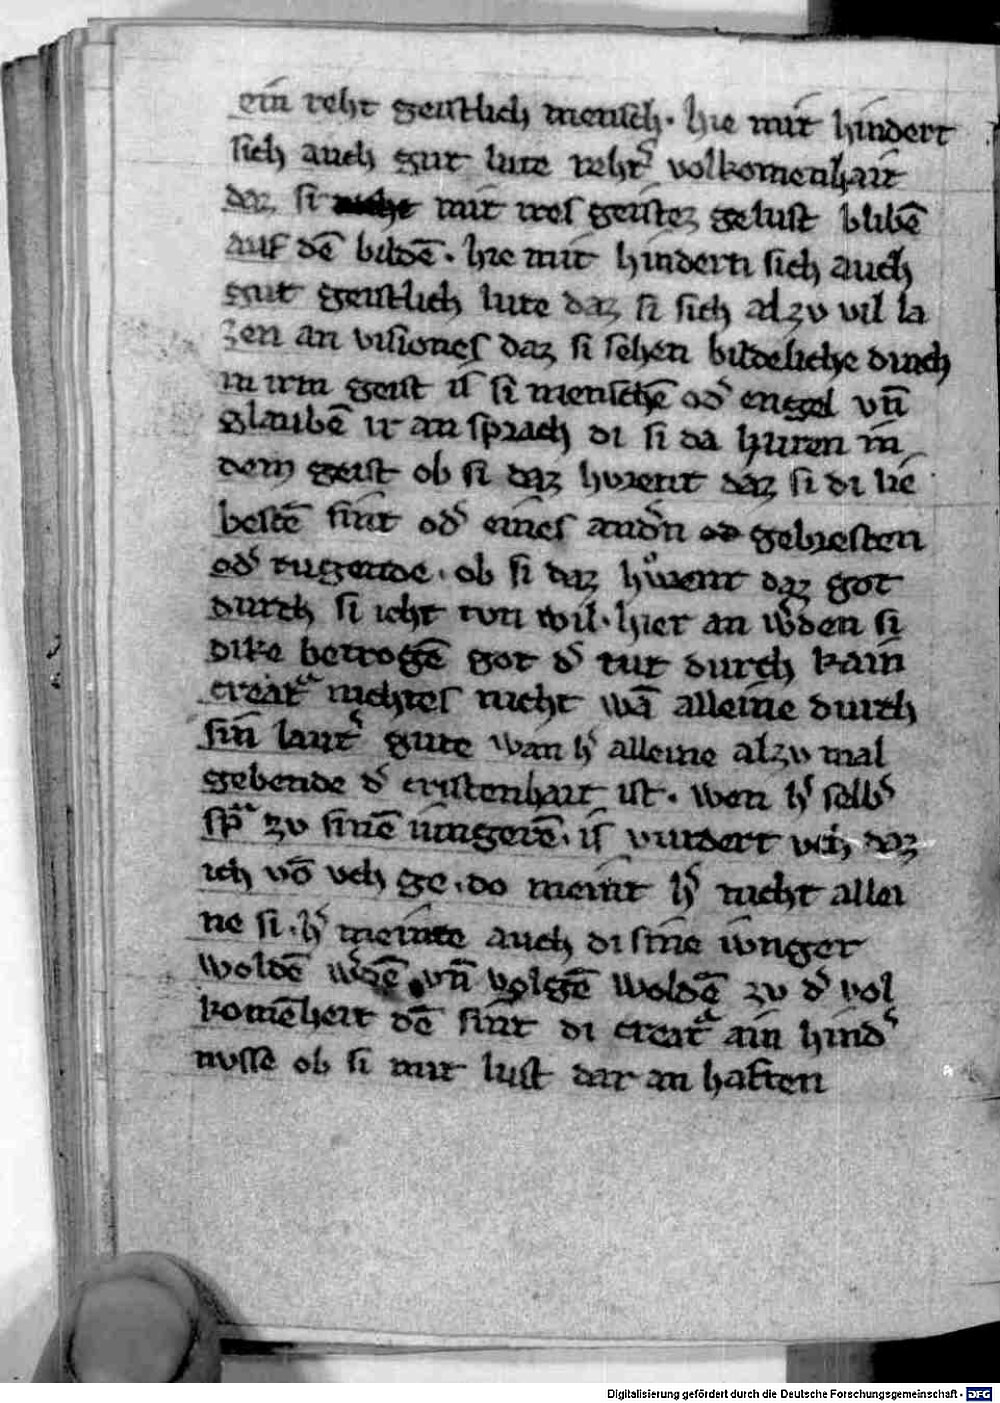 ein reht geistlich mensch · hie mit hindert
sich auch gut lute rehtˢ volkomenhait
daz si mit ires geistez gelust blibē
auf dē bildē · hie mit hindern sich auch
gut geistlich lute daz si sich alzv vil la
zen an visiones daz si sehen bildeliche dinch
in irm geist iſ si menschē odˢ engel vn̄
glaubē ir an sprach di si da huren in
dem geist ob si daz hvrent daz si di lie
bestē sint odˢ eines andˢn gebresten
odˢ tugende · ob si daz hvrent daz got
durch si icht tvn wil · hier an wˢden si
dike betrogē got dˢ tut durch kain
creatˢ nichtes nicht wā alleine durch
sin lautˢ gute wan hˢ alleine alzv mal
gebende dˢ cristenhait ist · wen hˢ selbˢ
spᵃ zv sinē iungerē · iſ vurdert vch daz
ich vō vch ge · do meint hˢ nicht allei
ne si · hˢ meinte auch di sine ivnger
woldē wˢdē vn̄ volgē woldē zv dˢ vol
komēheit dē sint di creatˢ ain hindˢ
nvsse ob si mit lust dar an haften
Digitalisierung gefördert durch die Deutsche Forschungsgemeinschaft - DFG